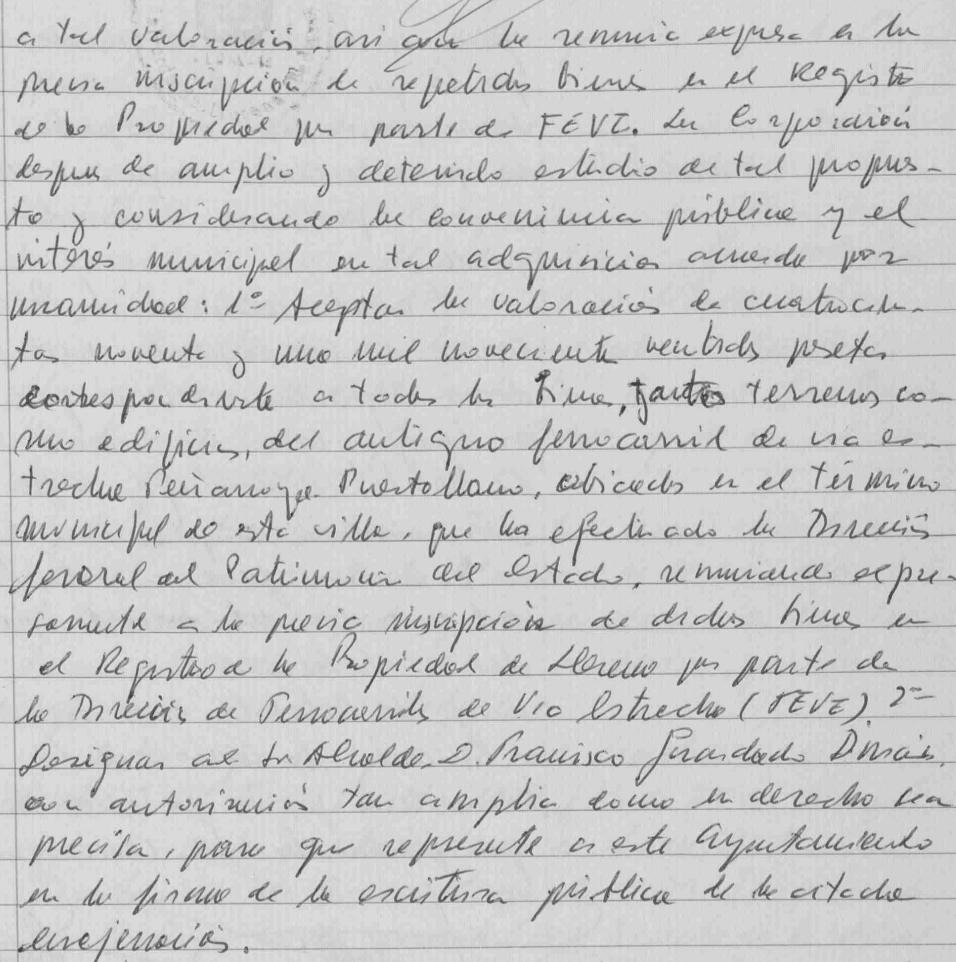 a tal valoración, asi como la renuncia expresa a la
previa inscripción de repetidos bienes en el Registro
de la Propiedad por parte de FEVE. La Corporación
despues de amplio y detenido estudio de tal propues-
ta y considerando la conveniencia pública y el
interés municipal en tal adquisición acuerda por
unanimidad: 1º Aceptar la valoración de cuatrocien-
tas noventa y una mil novecientas veintidos pesetas
correspondiente a todos los bienes, tanto terrenos co-
mo edificios, del antiguo ferrocarril de via es-
trecha Peñarroya-Puertollano, ubicados en el término
municipal de esta villa, que ha efectuado la Dirección
General del Patrimonio del Estado, renunciando expre-
samente a la previa inscripción de dichos bienes en
el Registro de la Propiedad de Llerena por parte de
la Dirección de Ferrocarriles de Via Estrecha (FEVE). 2º
Designar al Sr Alcalde D. Francisco Durán,
con autorización tan amplia como en derecho sea
precisa, para que represente a este Ayuntamiento
en la firma de la escritura pública de la citada
enajenación.